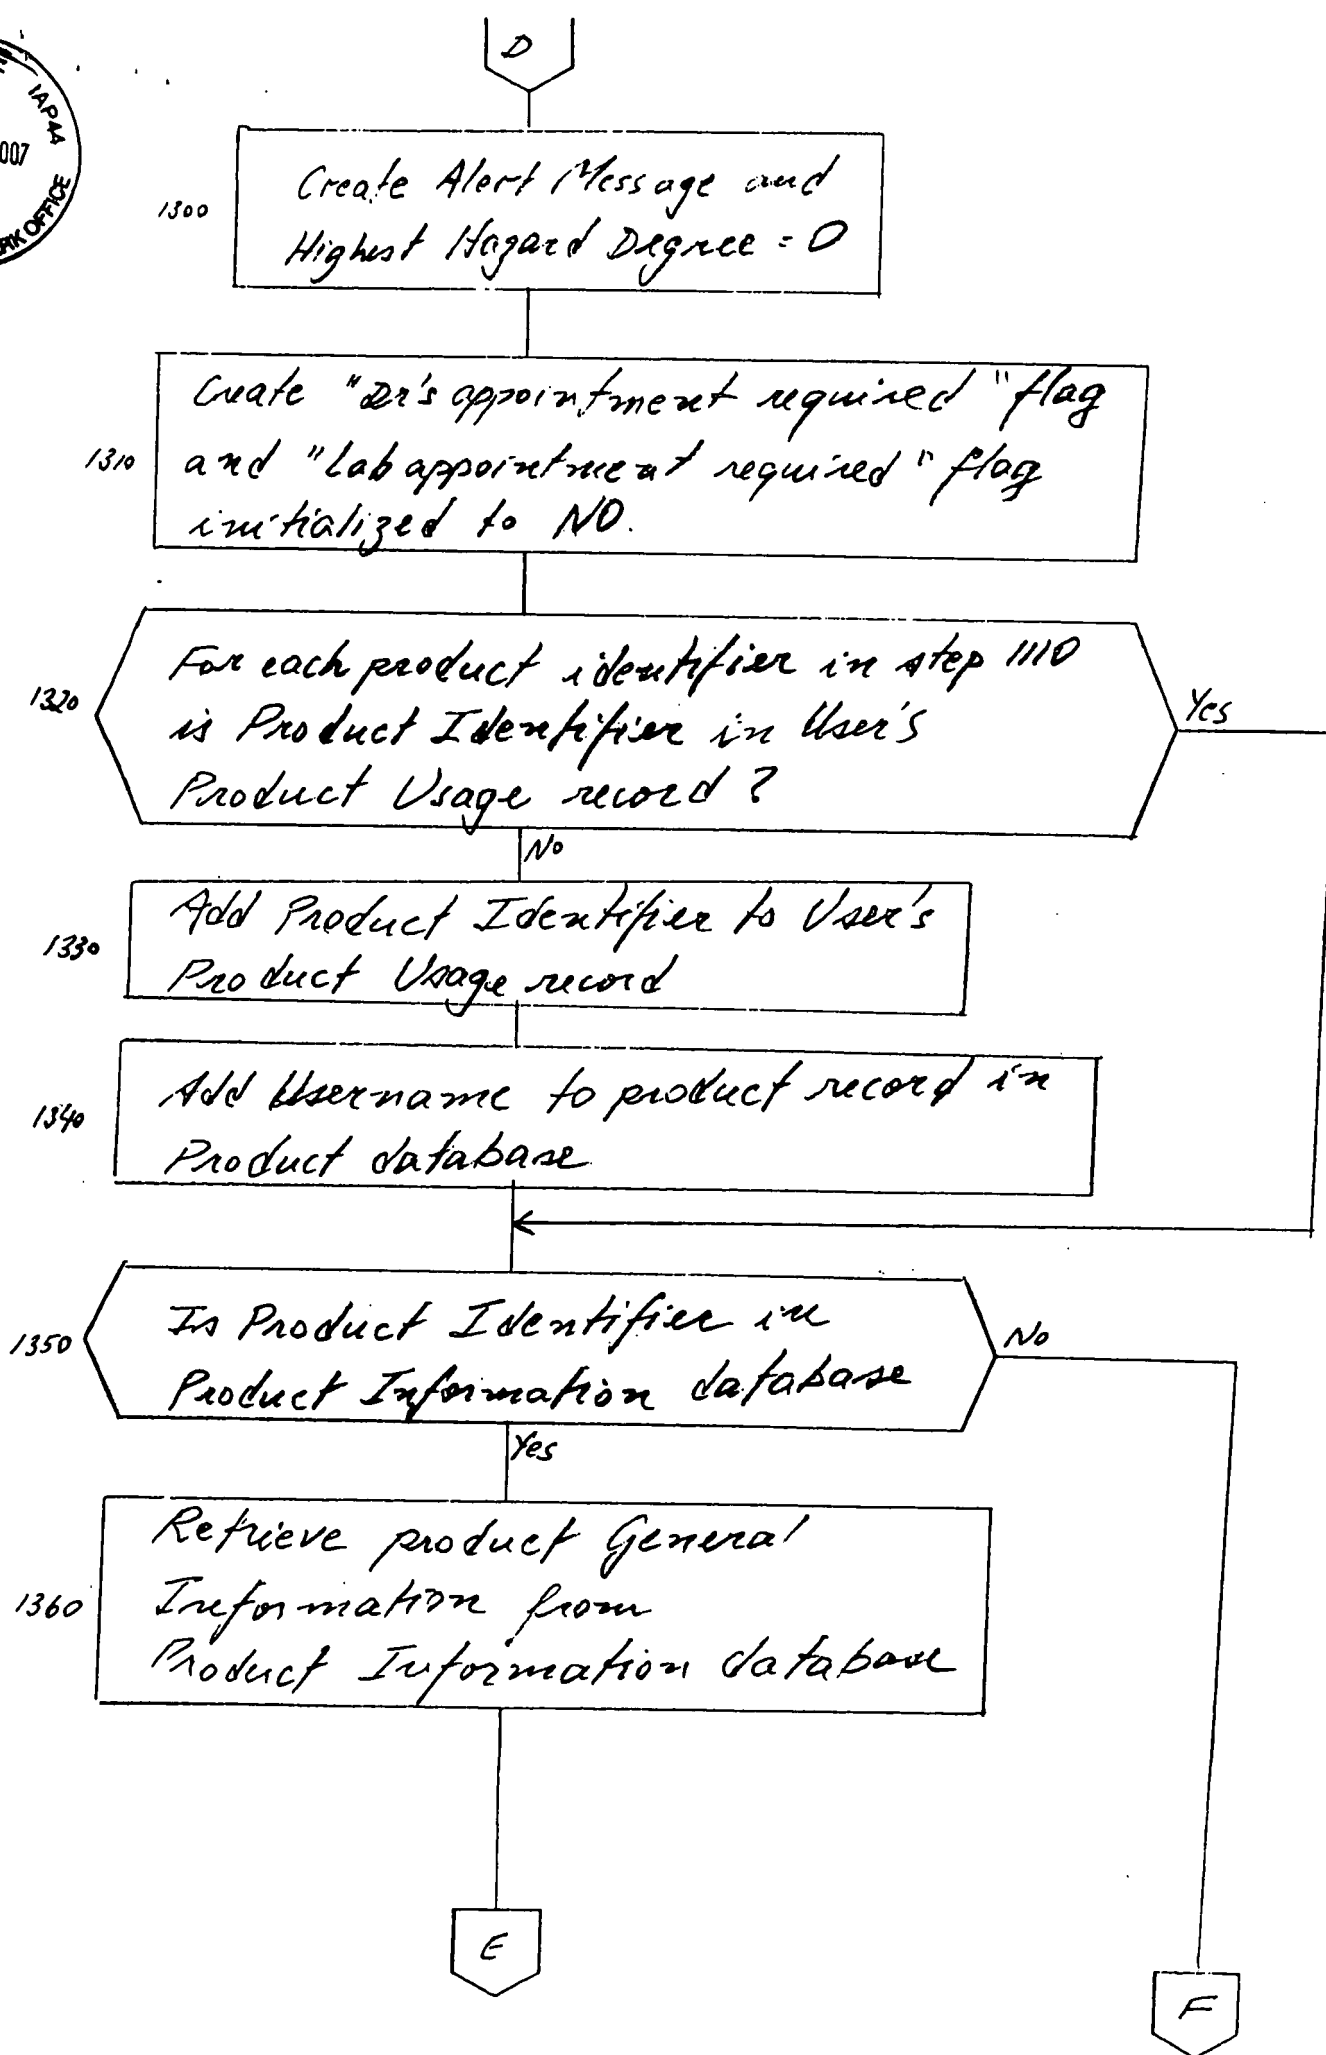 D
IAP44
007
OFFICE
1300
Create Alert Message and
Highest Hazard Degree = 0
1310
Create "Dr's appointment required" flag
and "Lab appointment required" flag
initialized to NO.
1320
For each product identifier in step 1110
is Product Identifier in User's
Product Usage record?
Yes
No
1330
Add Product Identifier to User's
Product Usage record
1340
Add Username to product record in
Product database
1350
Is Product Identifier in
Product Information database
No
Yes
1360
Retrieve product General
Information from
Product Information database
E
F